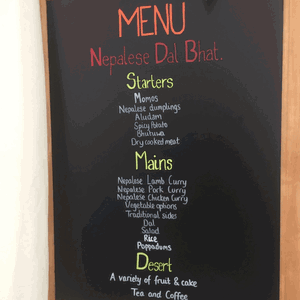 MENU
Nepalese Dal Bhat.
Starters
Momos
Nepalese dumplings
Aludam
Spicy Potato
Bhutuwa
Dry cooked meat
Mains
Nepalese Lamb Curry
Nepalese Pork Curry
Nepalese Chicken Curry
Vegetable options
Traditional sides
Dal
Salad
Rice
Poppadums
Desert
A variety of fruit & cake
Tea and Coffee